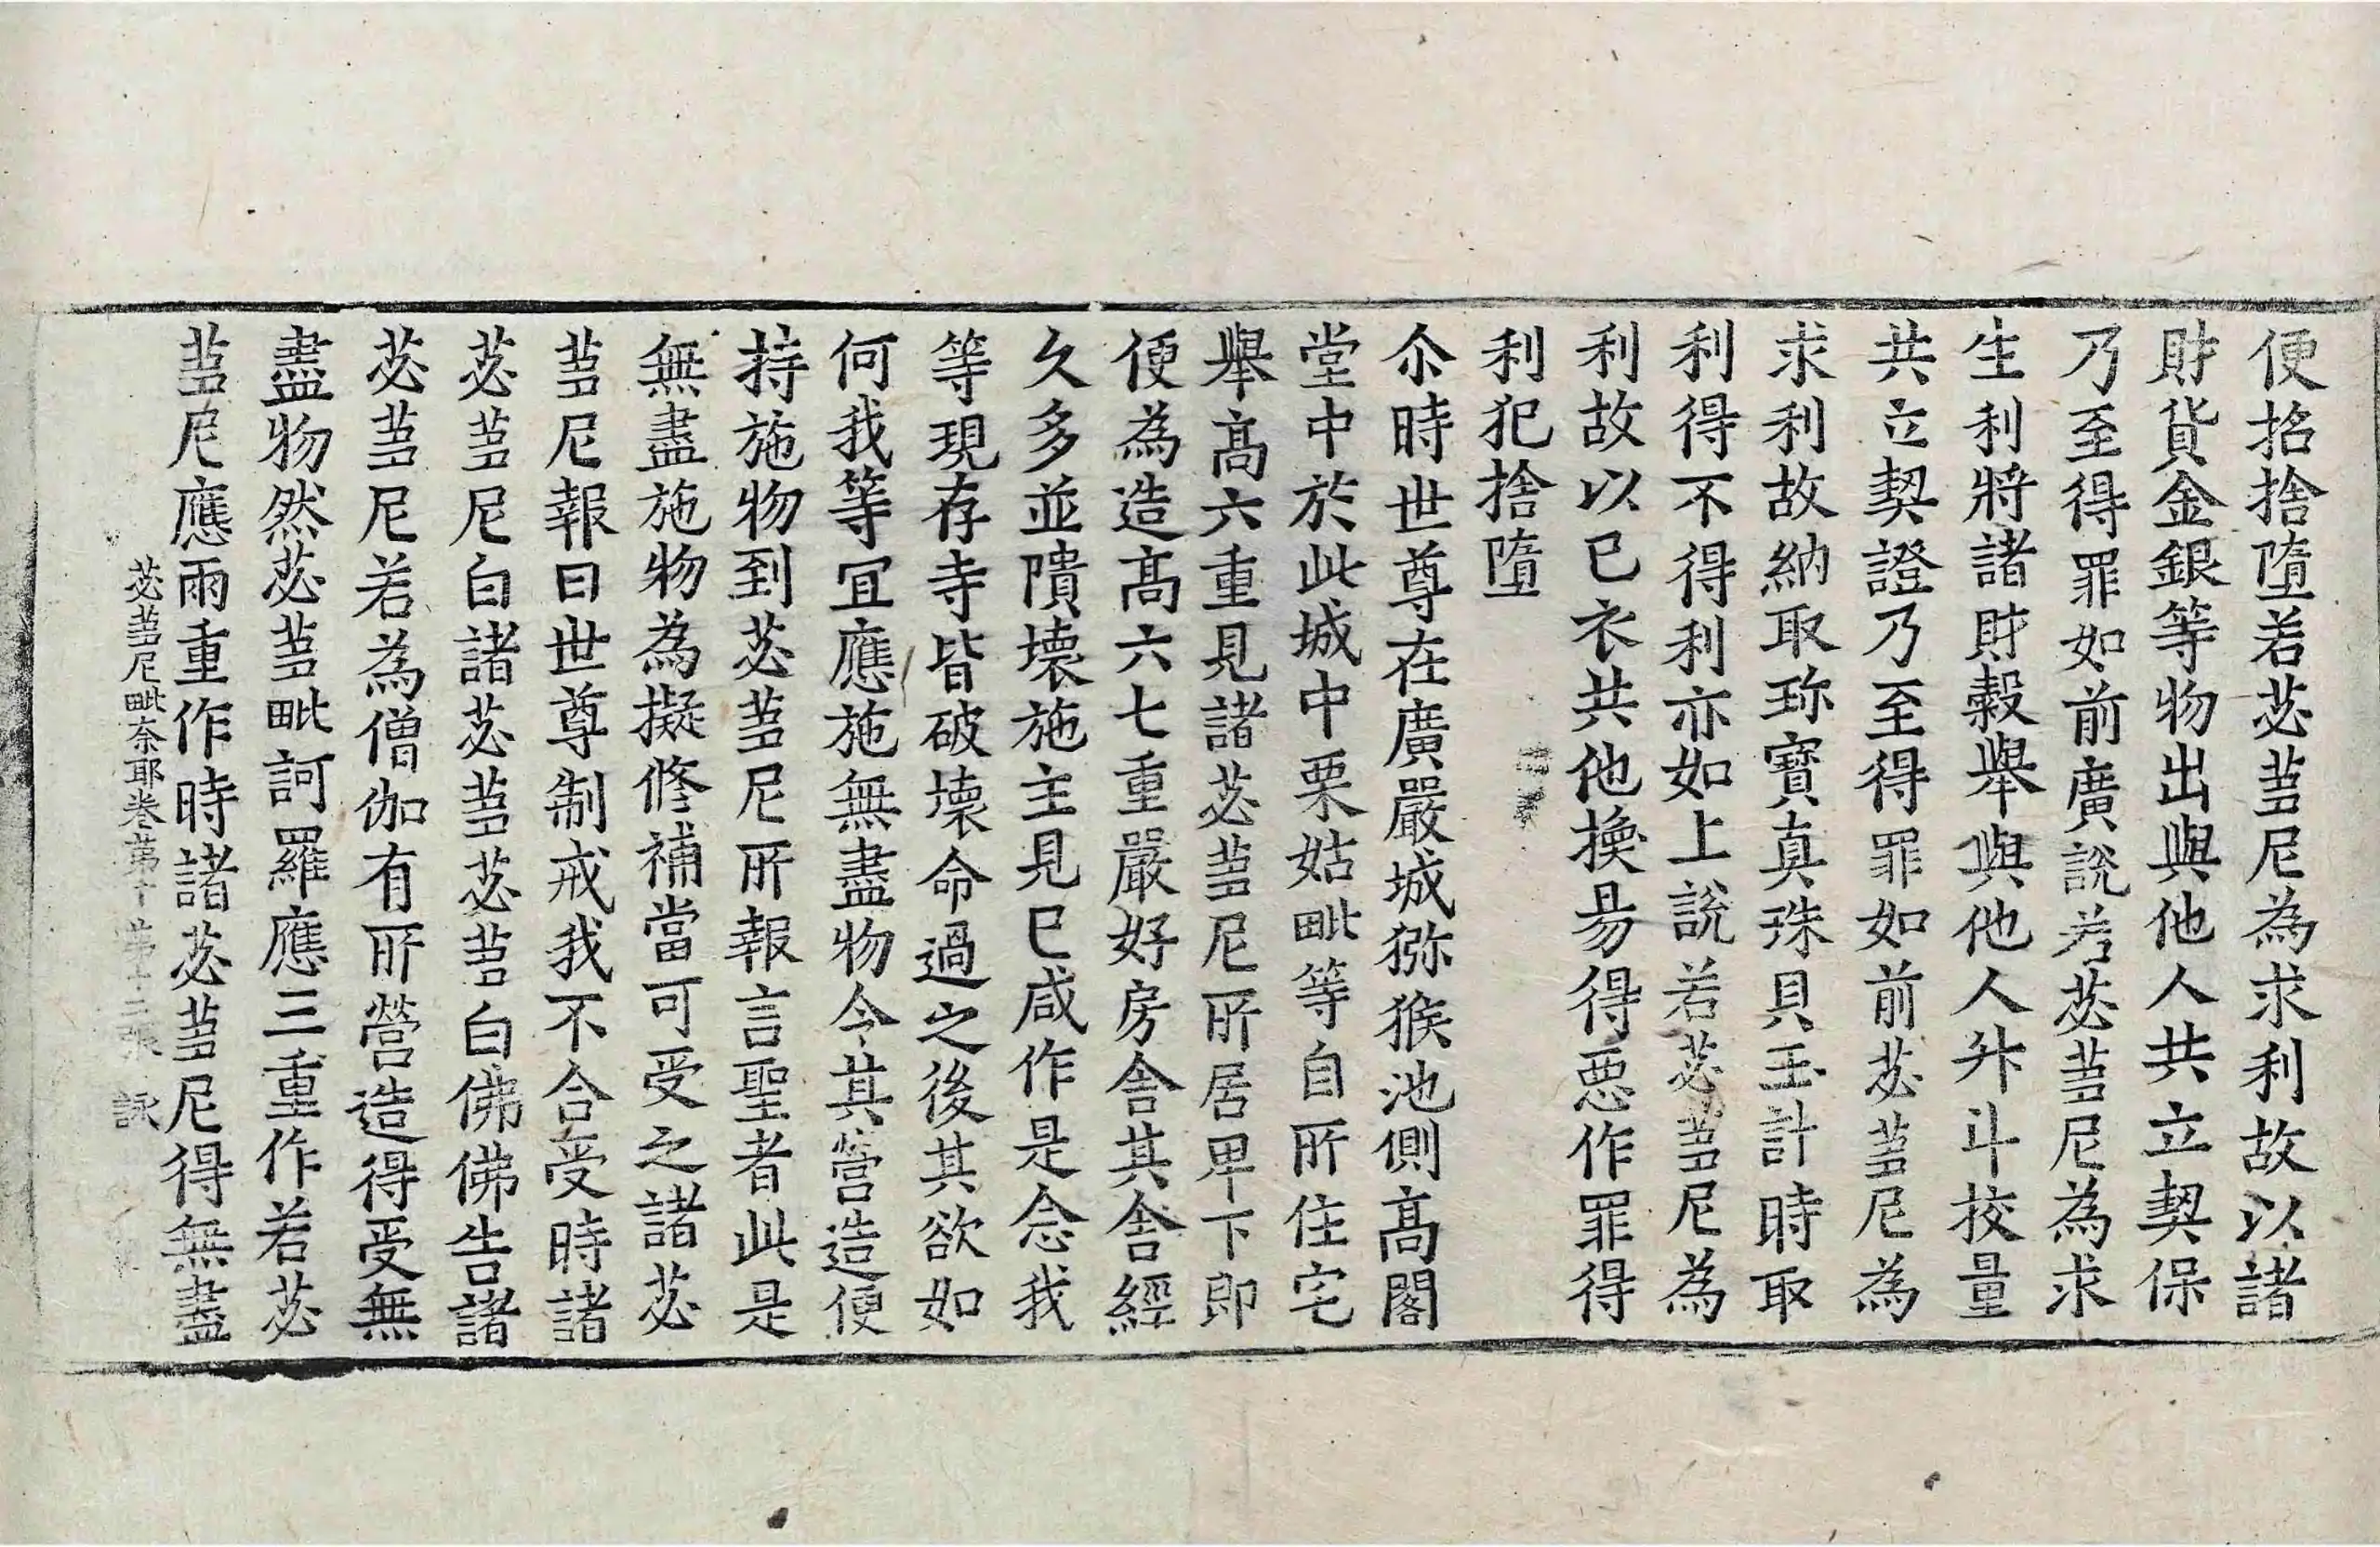 便招捨墮若苾蒭尼為求利故以諸
財貨金銀等物出與他人共立契保
乃至得罪如前廣說若苾蒭尼為求
生利將諸財穀舉與他人升斗挍量
共立契證乃至得罪如前苾蒭尼為
求利故納取珎寶真珠貝玉計時取
利得不得利亦如上說若苾蒭尼為
利故以已衣共他換易得惡作罪得
利犯捨墮
尒時世尊在廣嚴城獼猴池側高閣
堂中於此城中栗姑毗等自所住宅
舉高六重見諸苾蒭尼所居卑下即
便為造高六七重嚴好房舍其舍經
久多並隤壞施主見已咸作是念我
等現存寺皆破壞命過之後其欲如
何我等宜應施無盡物令其營造便
持施物到苾蒭尼所報言聖者此是
無盡施物為擬修補當可受之諸苾
蒭尼報曰世尊制戒我不合受時諸
苾蒭尼白諸苾蒭苾蒭白佛佛告諸
苾蒭尼若為僧伽有所營造得受無
盡物然苾蒭毗訶羅應三重作若苾
蒭尼應兩重作時諸苾蒭尼得無盡
苾蒭尼毗奈耶卷苐十 苐十二張 詠